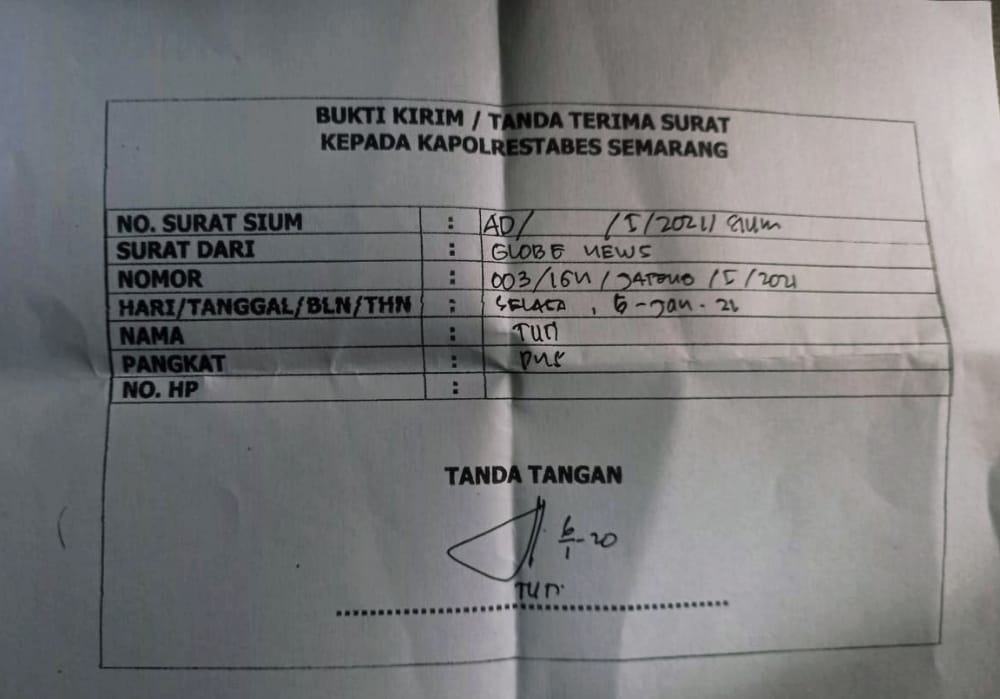 BUKTI KIRIM / TANDA TERIMA SURAT
KEPADA KAPOLRESTABES SEMARANG
NO. SURAT SIUM : AD/ /I/2021/ SIUM
SURAT DARI : GLOBE NEWS
NOMOR : 003/ /I/2021
HARI/TANGGAL/BLN/THN : -Jan-21
NAMA :
PANGKAT :
NO. HP :
TANDA TANGAN
6/1-20